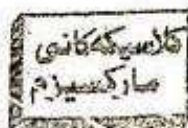 کلاسیکەکانی
مارکسیزم